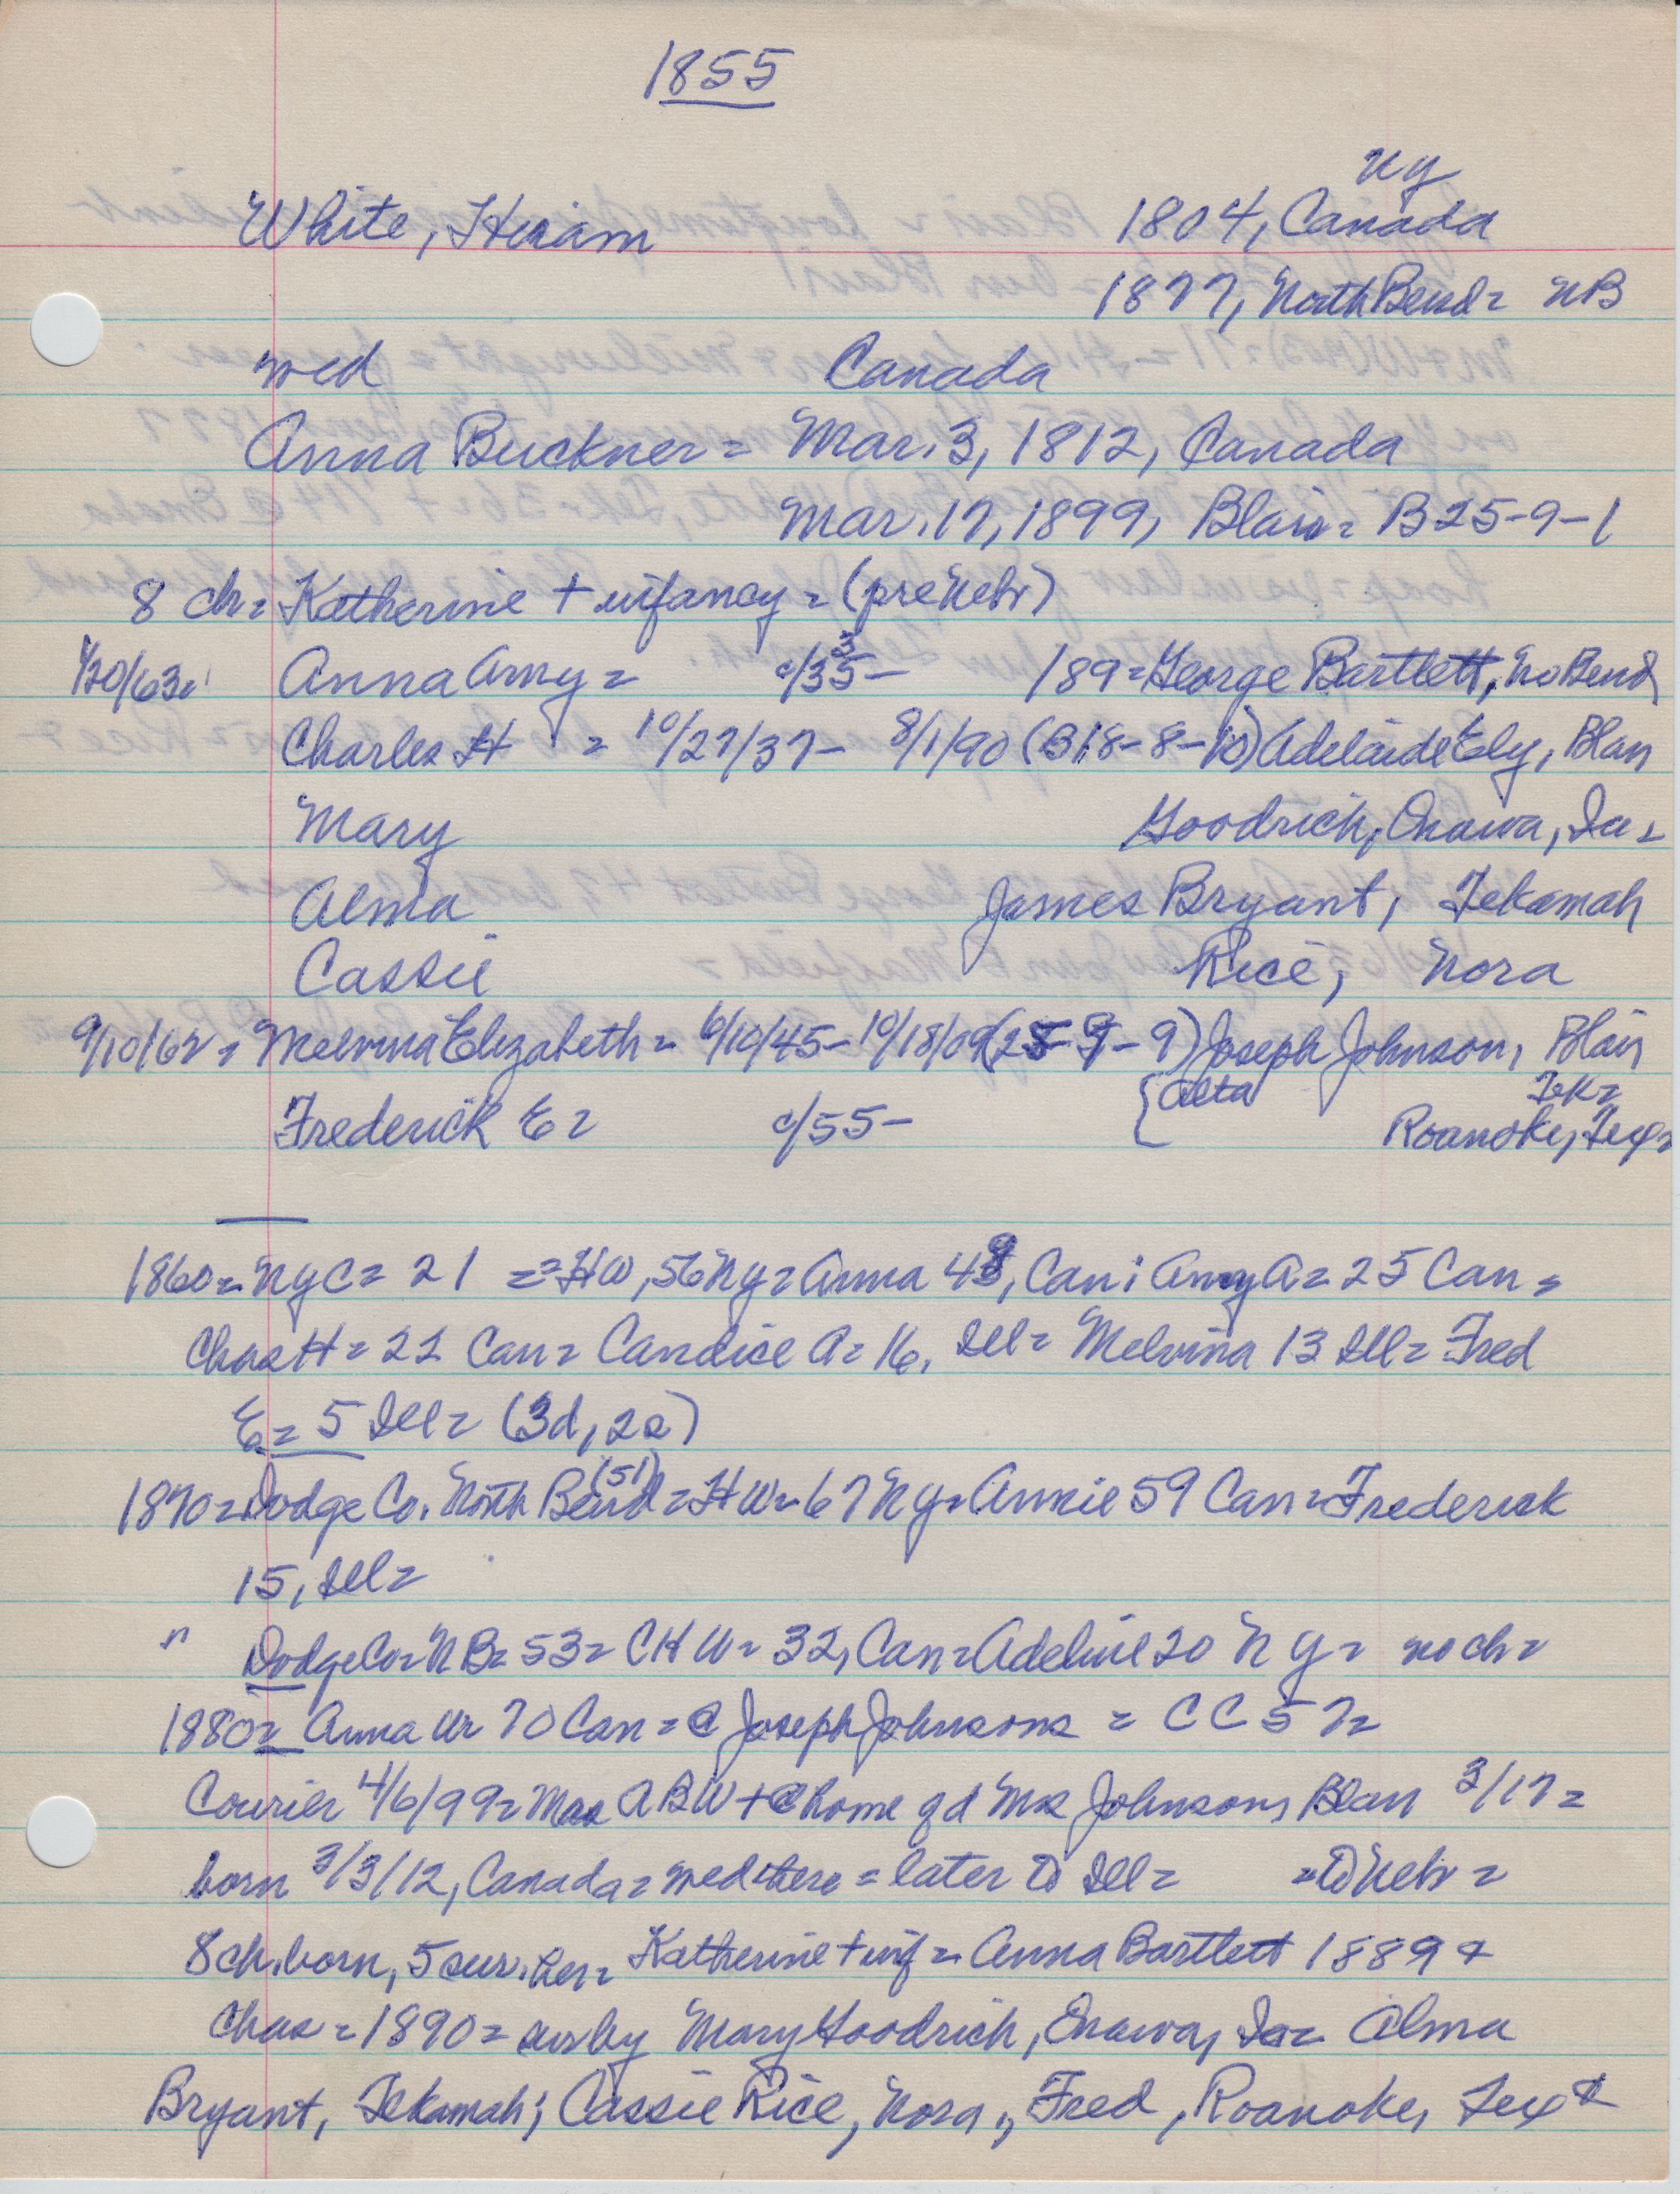 1855
NY
White, Hiram 1804, Canada
1877, North Bend = NB
wed Canada
Anna Buckner = Mar. 3, 1812, Canada
Mar. 17, 1899, Blair = B25-9-1
8 ch = Katherine + infancy = (pre Nebr)
1/20/63 = Anna Amy = c/35- 189 = George Bartlett, No Bend
Charles H = 10/27/37- 8/1/90 (B18-8-10) Adelaide Ely, Blair
Mary Goodrich, Onawa, Ia =
Alma James Bryant, Tekamah
Cassie Rice, Nora
9/10/62 = Melvina Elizabeth = 6/10/45- 10/18/09 (25-9-9) Joseph Johnson, Blair
Frederick E = c/55- { Alta Tek =
Roanoke, Tex =
1860 = NYC = 21 = = HW, 56 NY = Anna 48, Can; Amy A = 25 Can =
Chas H = 22 Can = Candice A = 16, Ill = Melvina 13 Ill = Fred
E = 5 Ill = (3d, 2s)
1870 = Dodge Co. North Bend (51) = HW = 67 NY = Annie 59 Can = Frederick
15, Ill =
" Dodge Co = NB = 53 = CHW = 32, Can = Adeline 20 NY = no ch =
1880 = Anna W 70 Can = @ Joseph Johnsons = CC 57 =
Courier 4/6/99 = Mrs ABW + @ home of d Mrs Johnson, Blair 3/17 =
born 3/3/12, Canada = wed there = later to Ill = = to Nebr =
8 ch. born, 5 sur. her = Katherine + inf = Anna Bartlett 1889 &
Chas = 1890 = sur by Mary Goodrich, Onawa, Ia = Alma
Bryant, Tekamah; Cassie Rice, Nora, Fred, Roanoke, Tex &